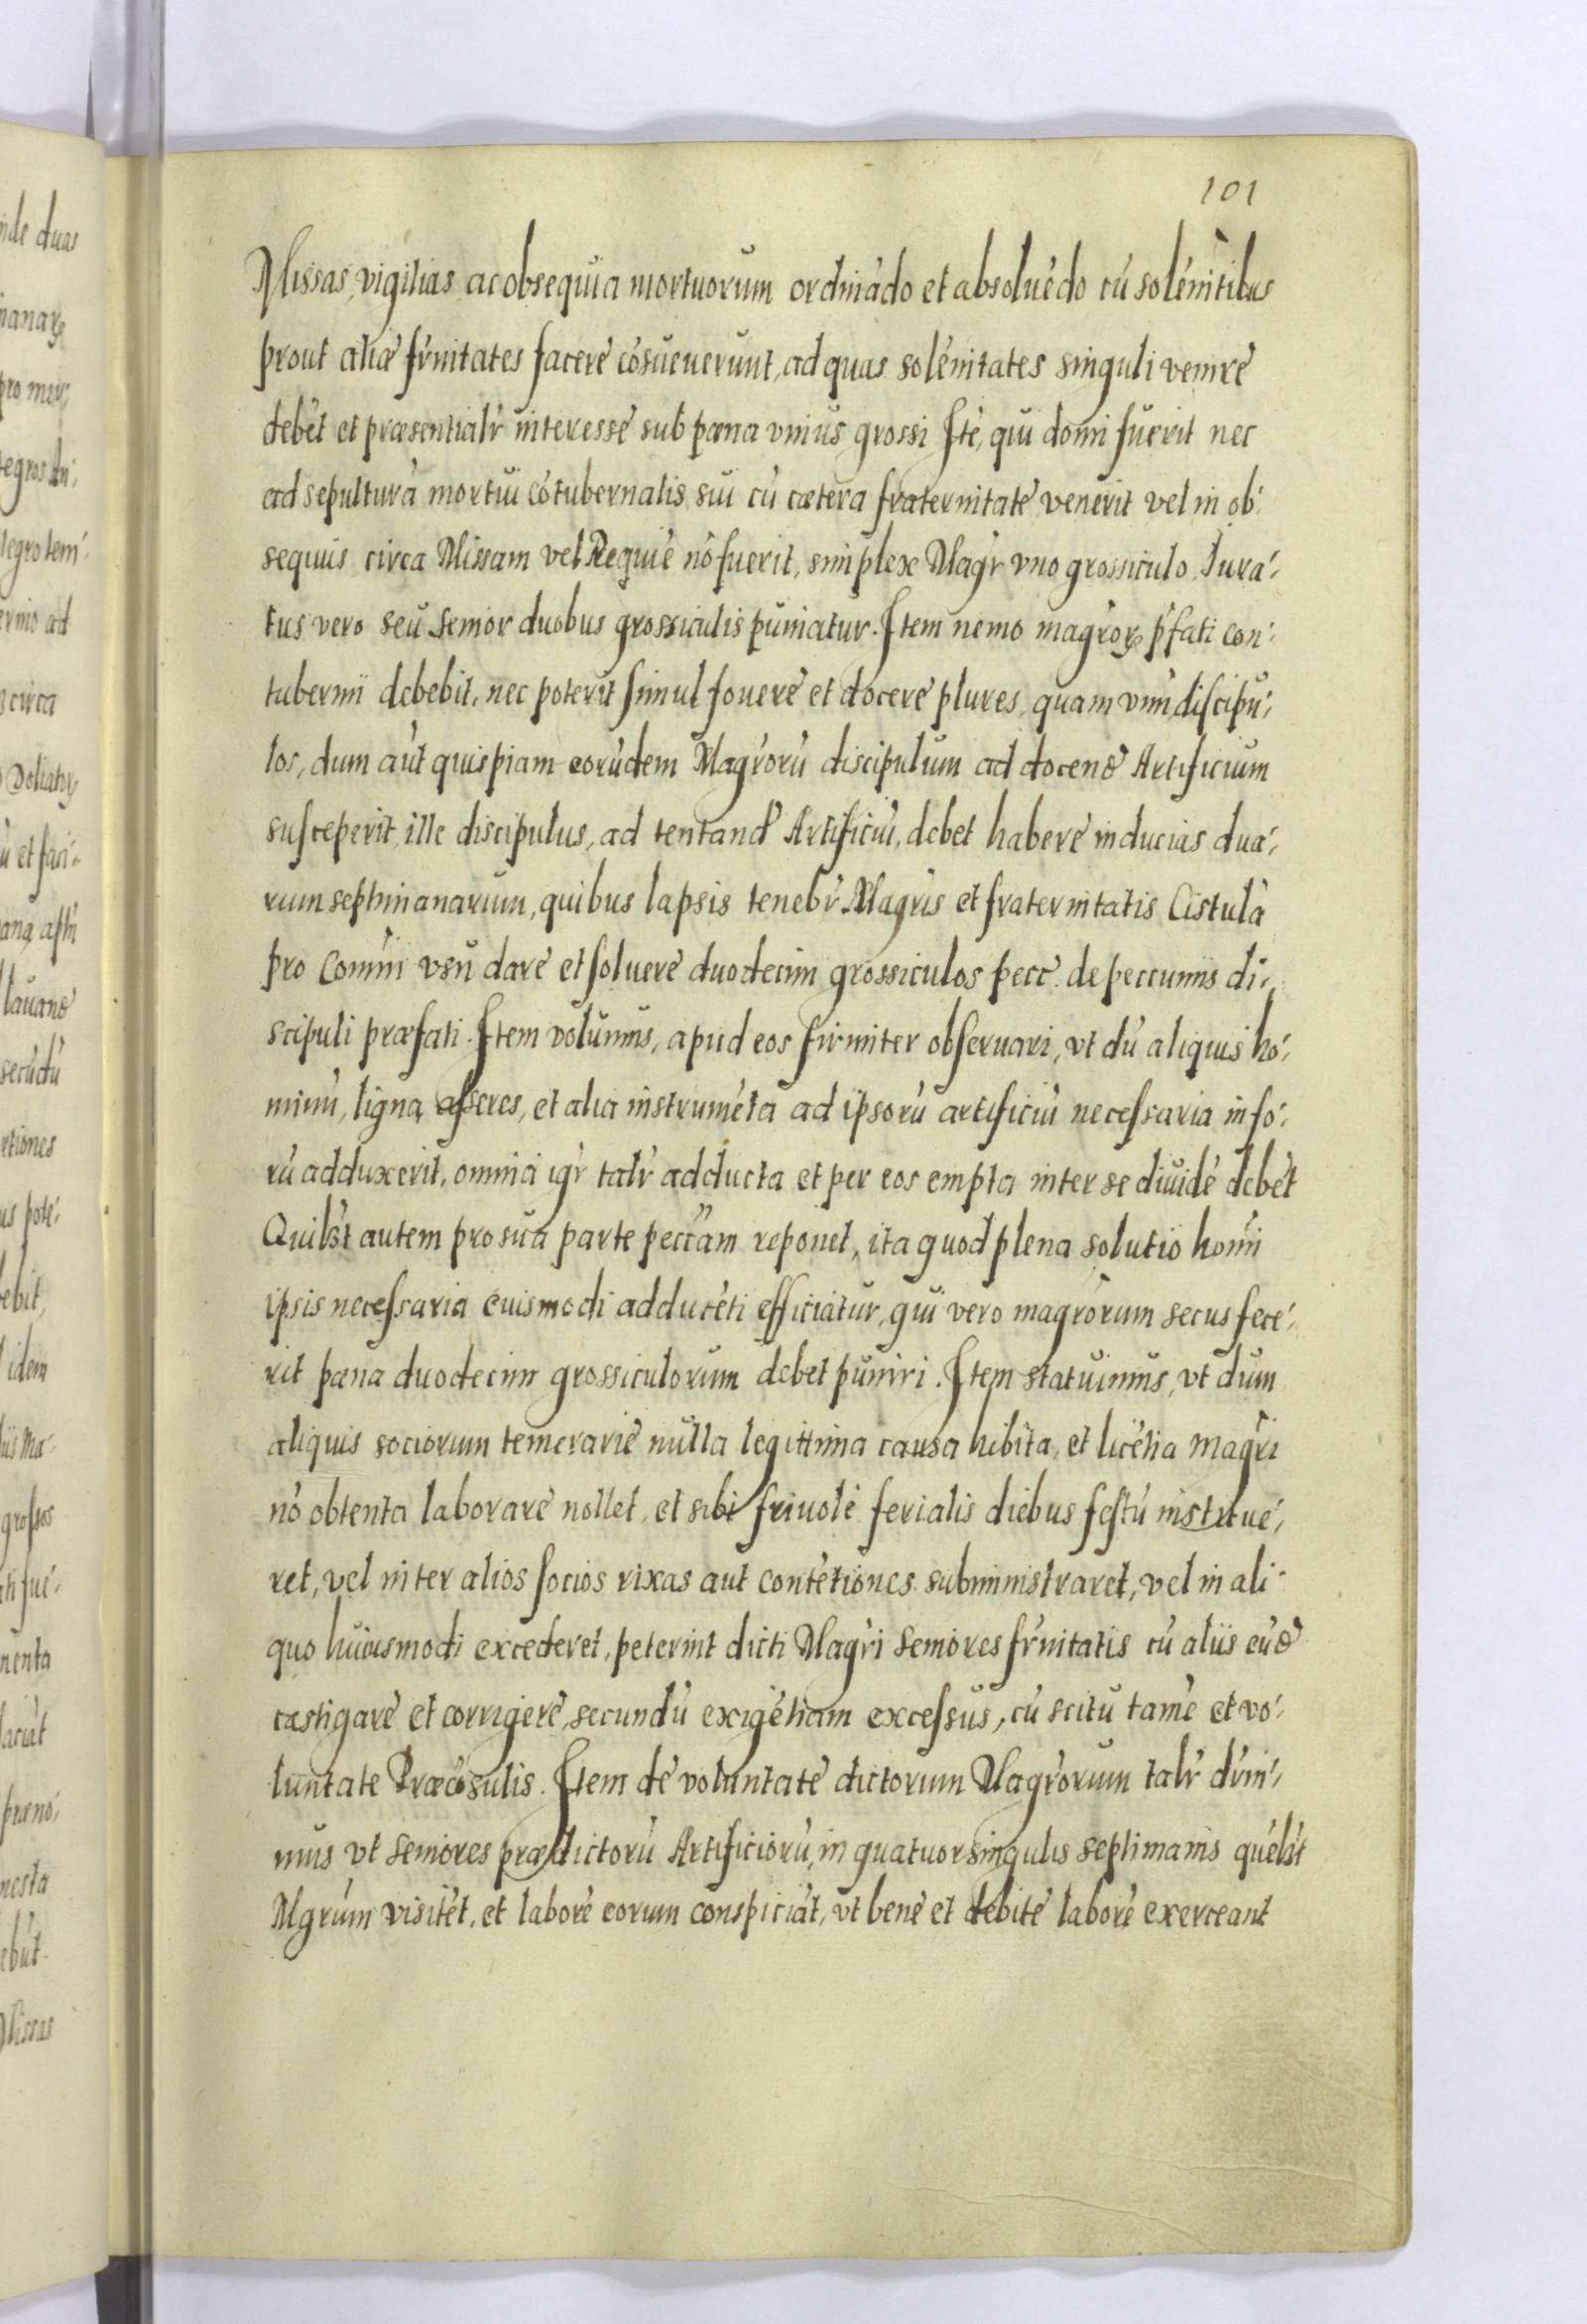 101
Missas, vigilias ac obsequia mortuorum ordinādo et absoluēdo cū solēnitibus
prout aliæ fr̃nitates facere cōsueuerunt, ad quas solēnitates singuli venire
debēt et præsentialr̃ interesse sub pæna vnius grossi Itē, qui domi fuerit nec
ad sepulturā mortui cōtubernalis sui cū cætera fraternitate venerit vel in ob-
sequiis circa Missam vel Requiē nō fuerit, simplex Magr̃ vno grossiculo, Iura-
tus vero seu Senior duobus grossiculis puniatur. Item nemo magrorꝝ p̃fati con-
tubernii debebit, nec poterit simul fouere et docere plures, quam vnū discipu-
los, dum aut quispiam eorūdem Magrorū discipulum ad docend̃ Artificium
susceperit, ille discipulus, ad tentand̃ Artificiū, debet habere inducias dua-
rum septimanarum, quibus lapsis tenebr̃ Magris et fraternitatis Cistulā
pro Com̃ni vsu dare et soluere duodecim grossiculos pecc̃. de peccuniis di-
scipuli præfati. Item volumus, apud eos firmiter obseruari, vt dū aliquis ho-
minū, ligna, asseres, et alia instrumēta ad ipsorū artificiū necessaria in fo-
rū adduxerit, omnia igr̃ talr̃ adducta et per eos empta inter se diuidē debēt
Quilibt autem pro sua parte pecc̃am reponet, ita quod plena solutio homi
ipsis necessaria euismodi adducēti efficiatur, qui vero magrorum secus fece-
rit pæna duodecim grossiculorum debet puniri. Item statuimus, vt dum
aliquis sociorum temerarie nulla legittima causa hibita, et licētia magri
nō obtenta laborare nollet, et sibi friuole ferialis diebus festū institue-
ret, vel inter alios socios rixas aut contētiones subministraret, vel in ali-
quo huiusmodi excederet, peterint dicti Magri Seniores fr̃nitatis cū aliis eūd̃
castigare et corrigere, secundū exigētiam excessus, cū scitu tamē et vo-
luntate Præcōsulis. Item de voluntate dictorum Magrorum talr̃ dr̃ni-
mus vt Seniores prædictorū Artificiorū, in quatuor singulis septimanis quēlibt
Mgrum visitēt, et laborē eorum conspiciāt, vt bene et debite laborē exerceant